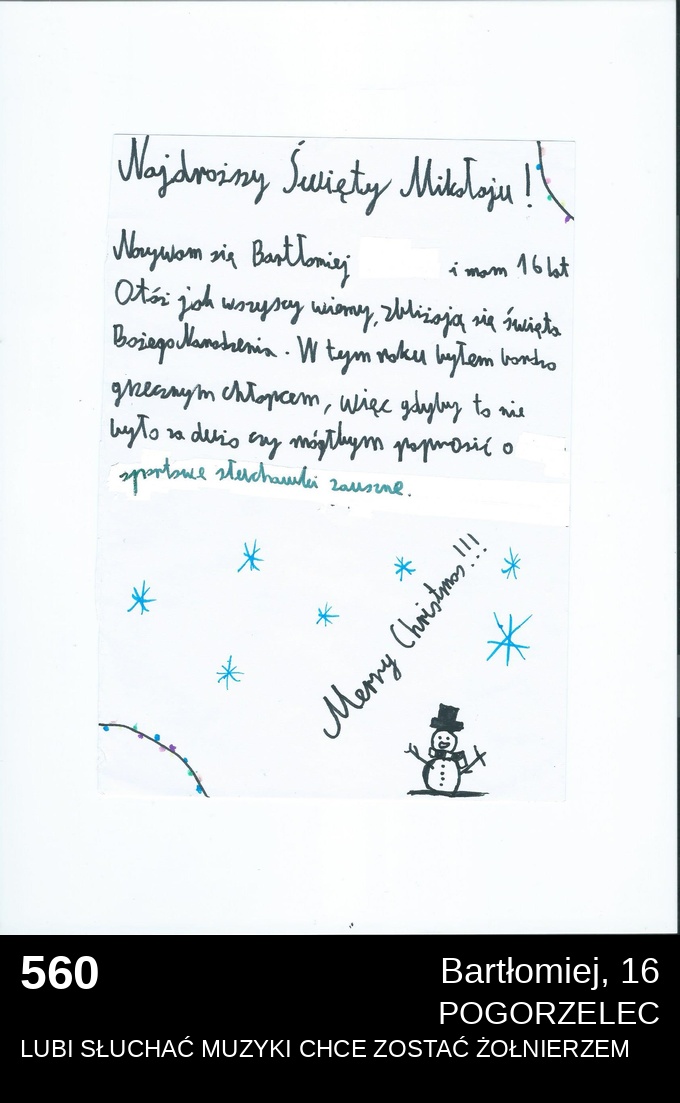 Najdroższy Święty Mikołaju!
Nazywam się Bartłomiej i mam 16 lat
Otóż jak wszyscy wiemy, zbliżają się święta
Bożego Narodzenia. W tym roku byłem bardzo
grzecznym chłopcem, więc gdyby to nie
było za dużo czy mógłbym poprosić o
sportowe słuchawki zauszne.
Merry Christmas!!!
560
Bartłomiej, 16
POGORZELEC
LUBI SŁUCHAĆ MUZYKI CHCE ZOSTAĆ ŻOŁNIERZEM